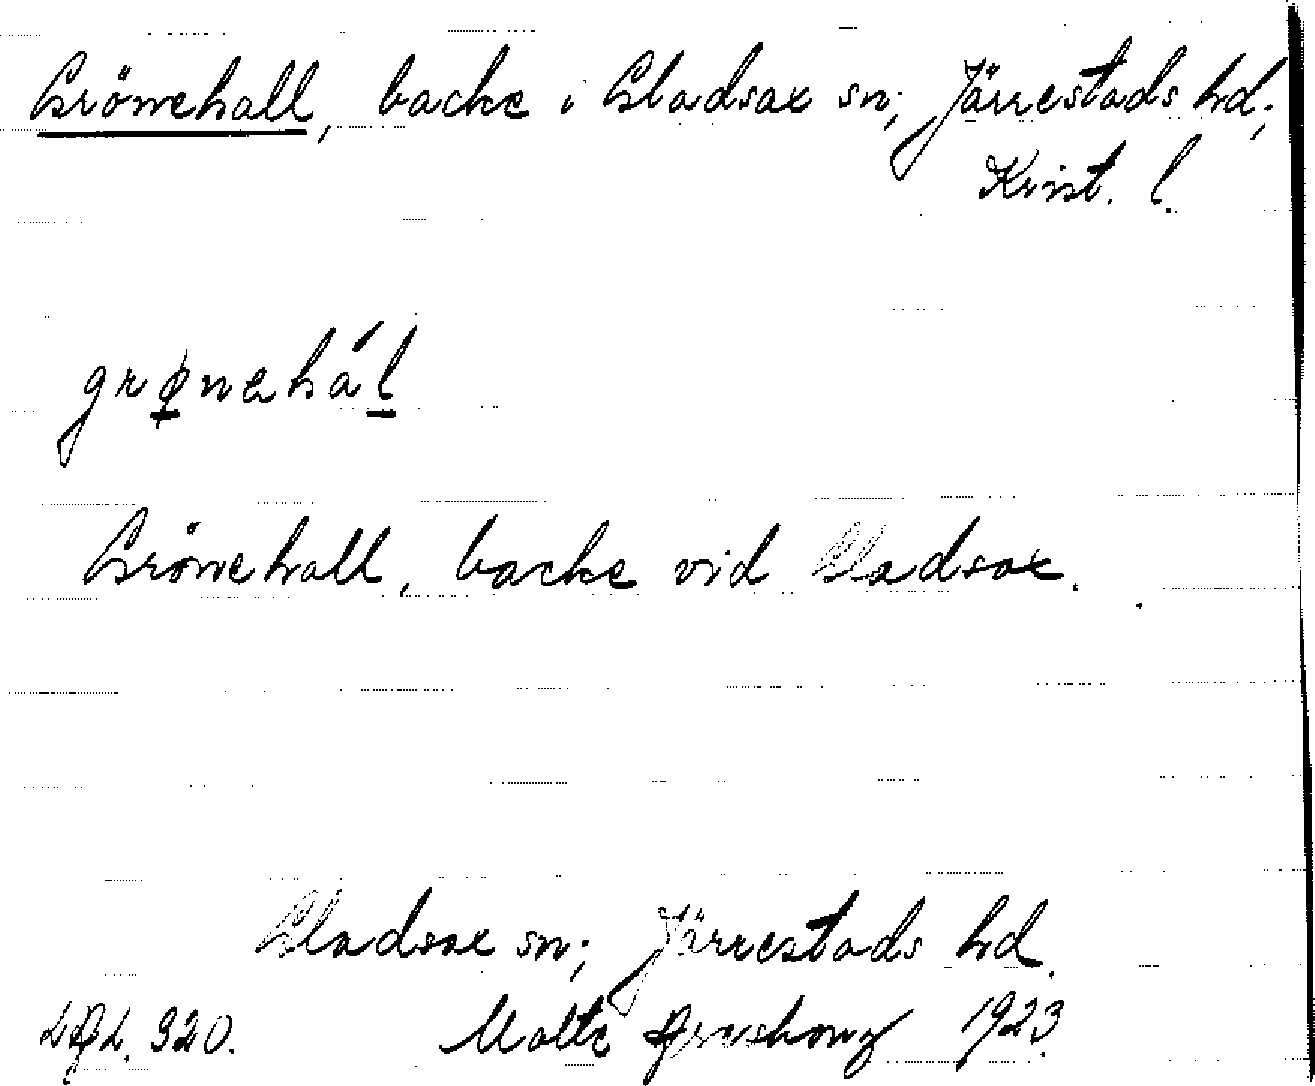 Grönehall, backe i Gladsax sn, Järrestads hd,
Krist. l.
grø̱nehál̲
Grönehall, backe vid Gladsax.
Gladsax sn, Järrestads hd.
320. Malte 1923.